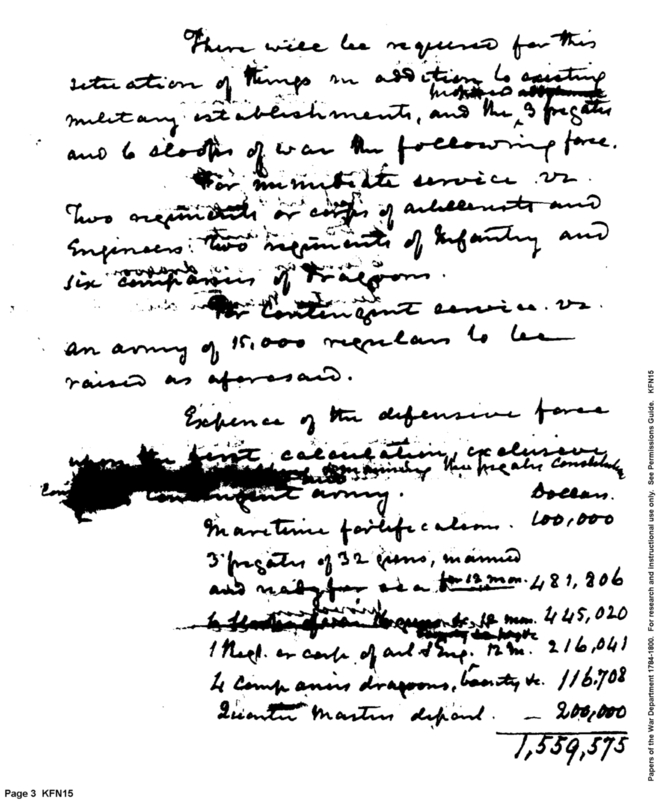 There will be required for this
situation of things in addition to existing
military establishments, and the 3 fregates
and 6 sloops of war the following force.
For immediate service. viz.
Two regiments or corps of artillerists and
Engineers. two regiments of Infantry and
six companies of Dragoons.
For Contingent service. viz.
an army of 15.000 regulars to be
raised as aforesaid.
Expence of the defensive force
upon the first calculation, exclusive
manning the fregates Constitution
contingent army. Dollars.
Maretime fortifications. 100,000
3 fregates of 32 guns, manned
and ready for sea for 12 mon. 481,806
12 mon. 445,020
bounty
1 Regt. or corps of art. & Eng. 12 m. 216,041
4 Companies dragoons, bounty &c. 116.708
Quarter Masters depart. – 200,000
1,559,575
Page 3 KFN15
Papers of the War Department 1784-1800. For research and instructional use only. See Permissions Guide. KFN15